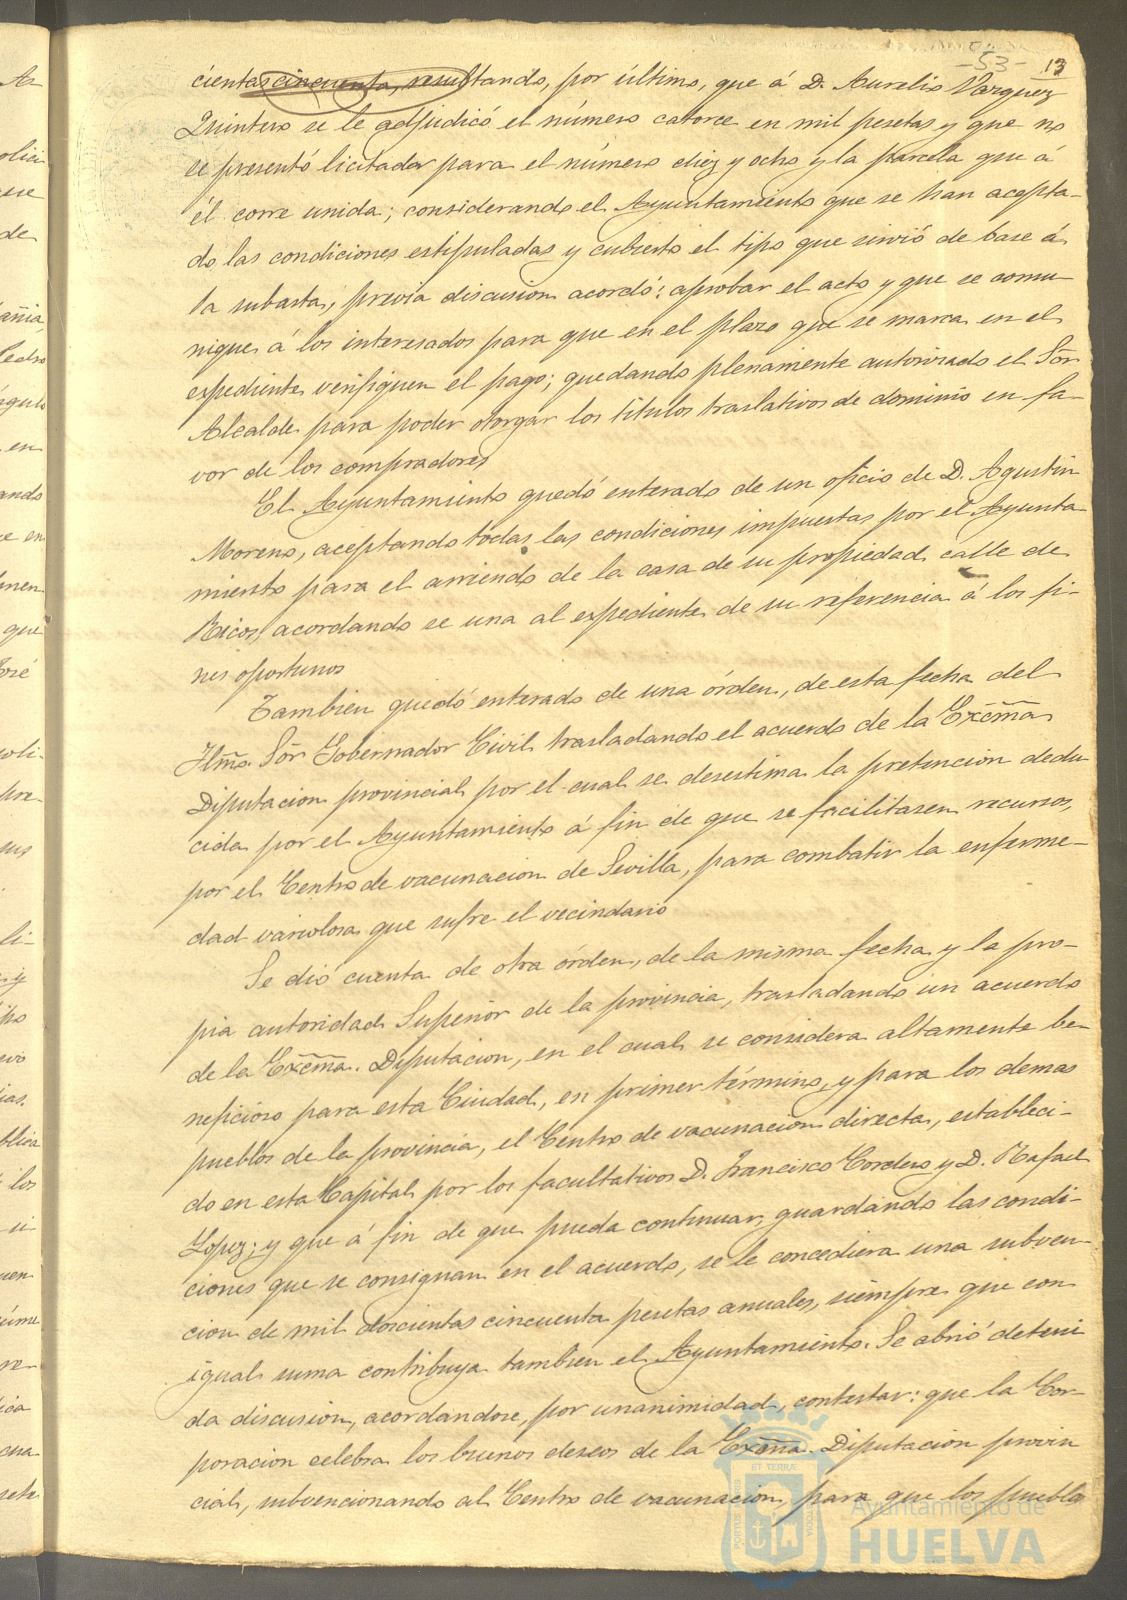 -53- 13
cientas cincuenta, resultando, por último, que á D. Aurelio Vazquez
Quintero se le adjudicó el número catorce en mil pesetas y que no
se presentó licitador para el número diez y ocho y la parcela que á
él corre unida; considerando el Ayuntamiento que se han acepta-
do las condiciones estipuladas y cubierto el tipo que sirvió de base á
la subasta, previa discusion acordó: aprobar el acto y que se comu-
nique á los interesados para que en el plazo que se marca en el
expediente verifiquen el pago; quedando plenamente autorizado el Sor
Alcalde para poder otorgar los titulos traslativos de dominio en fa-
vor de los compradores
El Ayuntamiento quedó enterado de un oficio de D. Agustin
Moreno, aceptando todas las condiciones impuestas por el Ayunta
miento para el arriendo de la casa de su propiedad calle de
Ricos, acordando se una al expediente de su referencia á los fi-
nes oportunos
Tambien quedó enterado de una órden, de esta fecha del
Iltmo. Sor Gobernador Civil trasladando el acuerdo de la Excma
Diputacion provincial por el cual se desestima la pretencion dedu
cida por el Ayuntamiento á fin de que se facilitasen recursos,
por el Centro de vacunacion de Sevilla, para combatir la enferme-
dad variolosa que sufre el vecindario
Se dió cuenta de otra órden, de la misma fecha y la pro-
pia autoridad Superior de la provincia, trasladando un acuerdo
de la Excma. Diputacion, en el cual se considera altamente be-
neficioso para esta Ciudad, en primer término, y para los demas
pueblos de la provincia, el Centro de vacunacion directa, estableci-
do en esta Capital por los facultativos D. Francisco Cordero y D. Rafael
Lopez; y que á fin de que pueda continuar, guardando las condi-
ciones que se consignan en el acuerdo, se le concediera una subven-
cion de mil doscientas cincuenta pesetas anuales, siempre que con
igual suma contribuya tambien el Ayuntamiento. Se abrió deteni
da discusion, acordandose, por unanimidad, contestar: que la Cor-
poracion celebra los buenos deseos de la Excma. Diputacion provin
cial, subvencionando al Centro de vacunacion, para que los pueblos
Ayuntamiento de
HUELVA